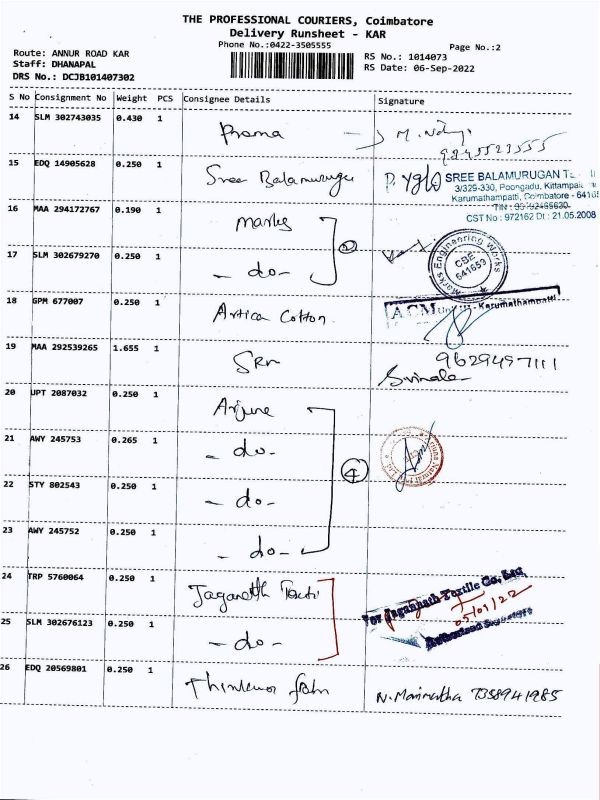 THE PROFESSIONAL COURIERS, Coimbatore
Delivery Runsheet - KAR
Phone No.:0422-3505555
Page No.:2
Route: ANNUR ROAD KAR
Staff: DHANAPAL
DRS No.: DCJB101407302
RS No.: 1014073
RS Date: 06-Sep-2022
S No Consignment No Weight PCS Consignee Details Signature
14 SLM 302743035 0.430 1 Prama
15 EDQ 14905628 0.250 1 Sree Balamurugan
SREE BALAMURUGAN
3/329-330, Poongadu, Kittampa
Karumathampatti, Coimbatore -
CST No : 972162 Dt : 21.05.2008
16 MAA 294172767 0.190 1 Marks
17 SLM 302679270 0.250 1 - do - 2
Marks Engineering Works
CBE
641659
18 GPM 677007 0.250 1 Artica Cotton
ACM Karumathampatti
19 MAA 292539265 1.655 1 SRM 9629497111
20 UPT 2087032 0.250 1 Arjune
21 AWY 245753 0.265 1 - do -
4
22 STY 802543 0.250 1 - do -
23 AWY 245752 0.250 1 - do -
24 TRP 5760064 0.250 1 Jaganath
For Jagannath Textile Co, Ltd
05/09/22
Authorised Signatory
25 SLM 302676123 0.250 1 - do -
26 EDQ 20569801 0.250 1 N. Marimutha 7358941985